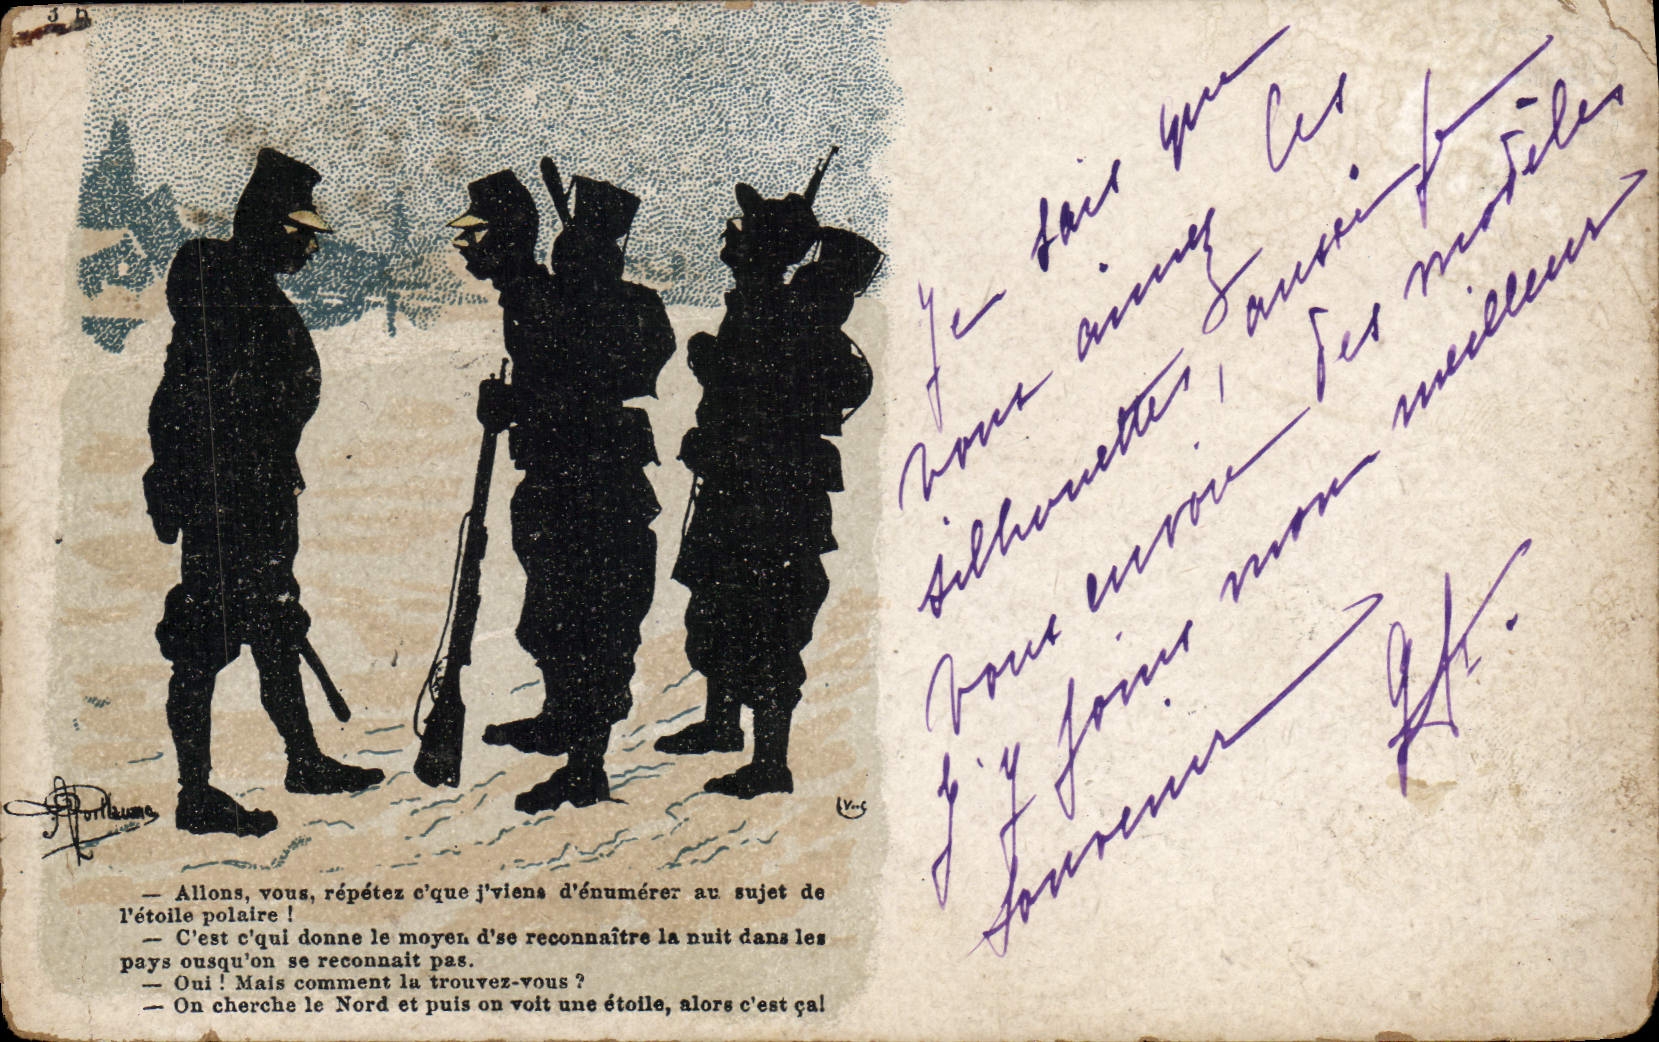 — Allons, vous, répétez c'que j'viens d'énumérer au sujet de
l'étoile polaire !
— C'est c'qui donne le moyen d'se reconnaître la nuit dans les
pays ousqu'on se reconnait pas.
— Oui ! Mais comment la trouvez-vous ?
— On cherche le Nord et puis on voit une étoile, alors c'est ça!
Je sais que
vous aimez les
silhouettes, aussi je
vous envoie des modèles
J'y joins mon meilleur
souvenir